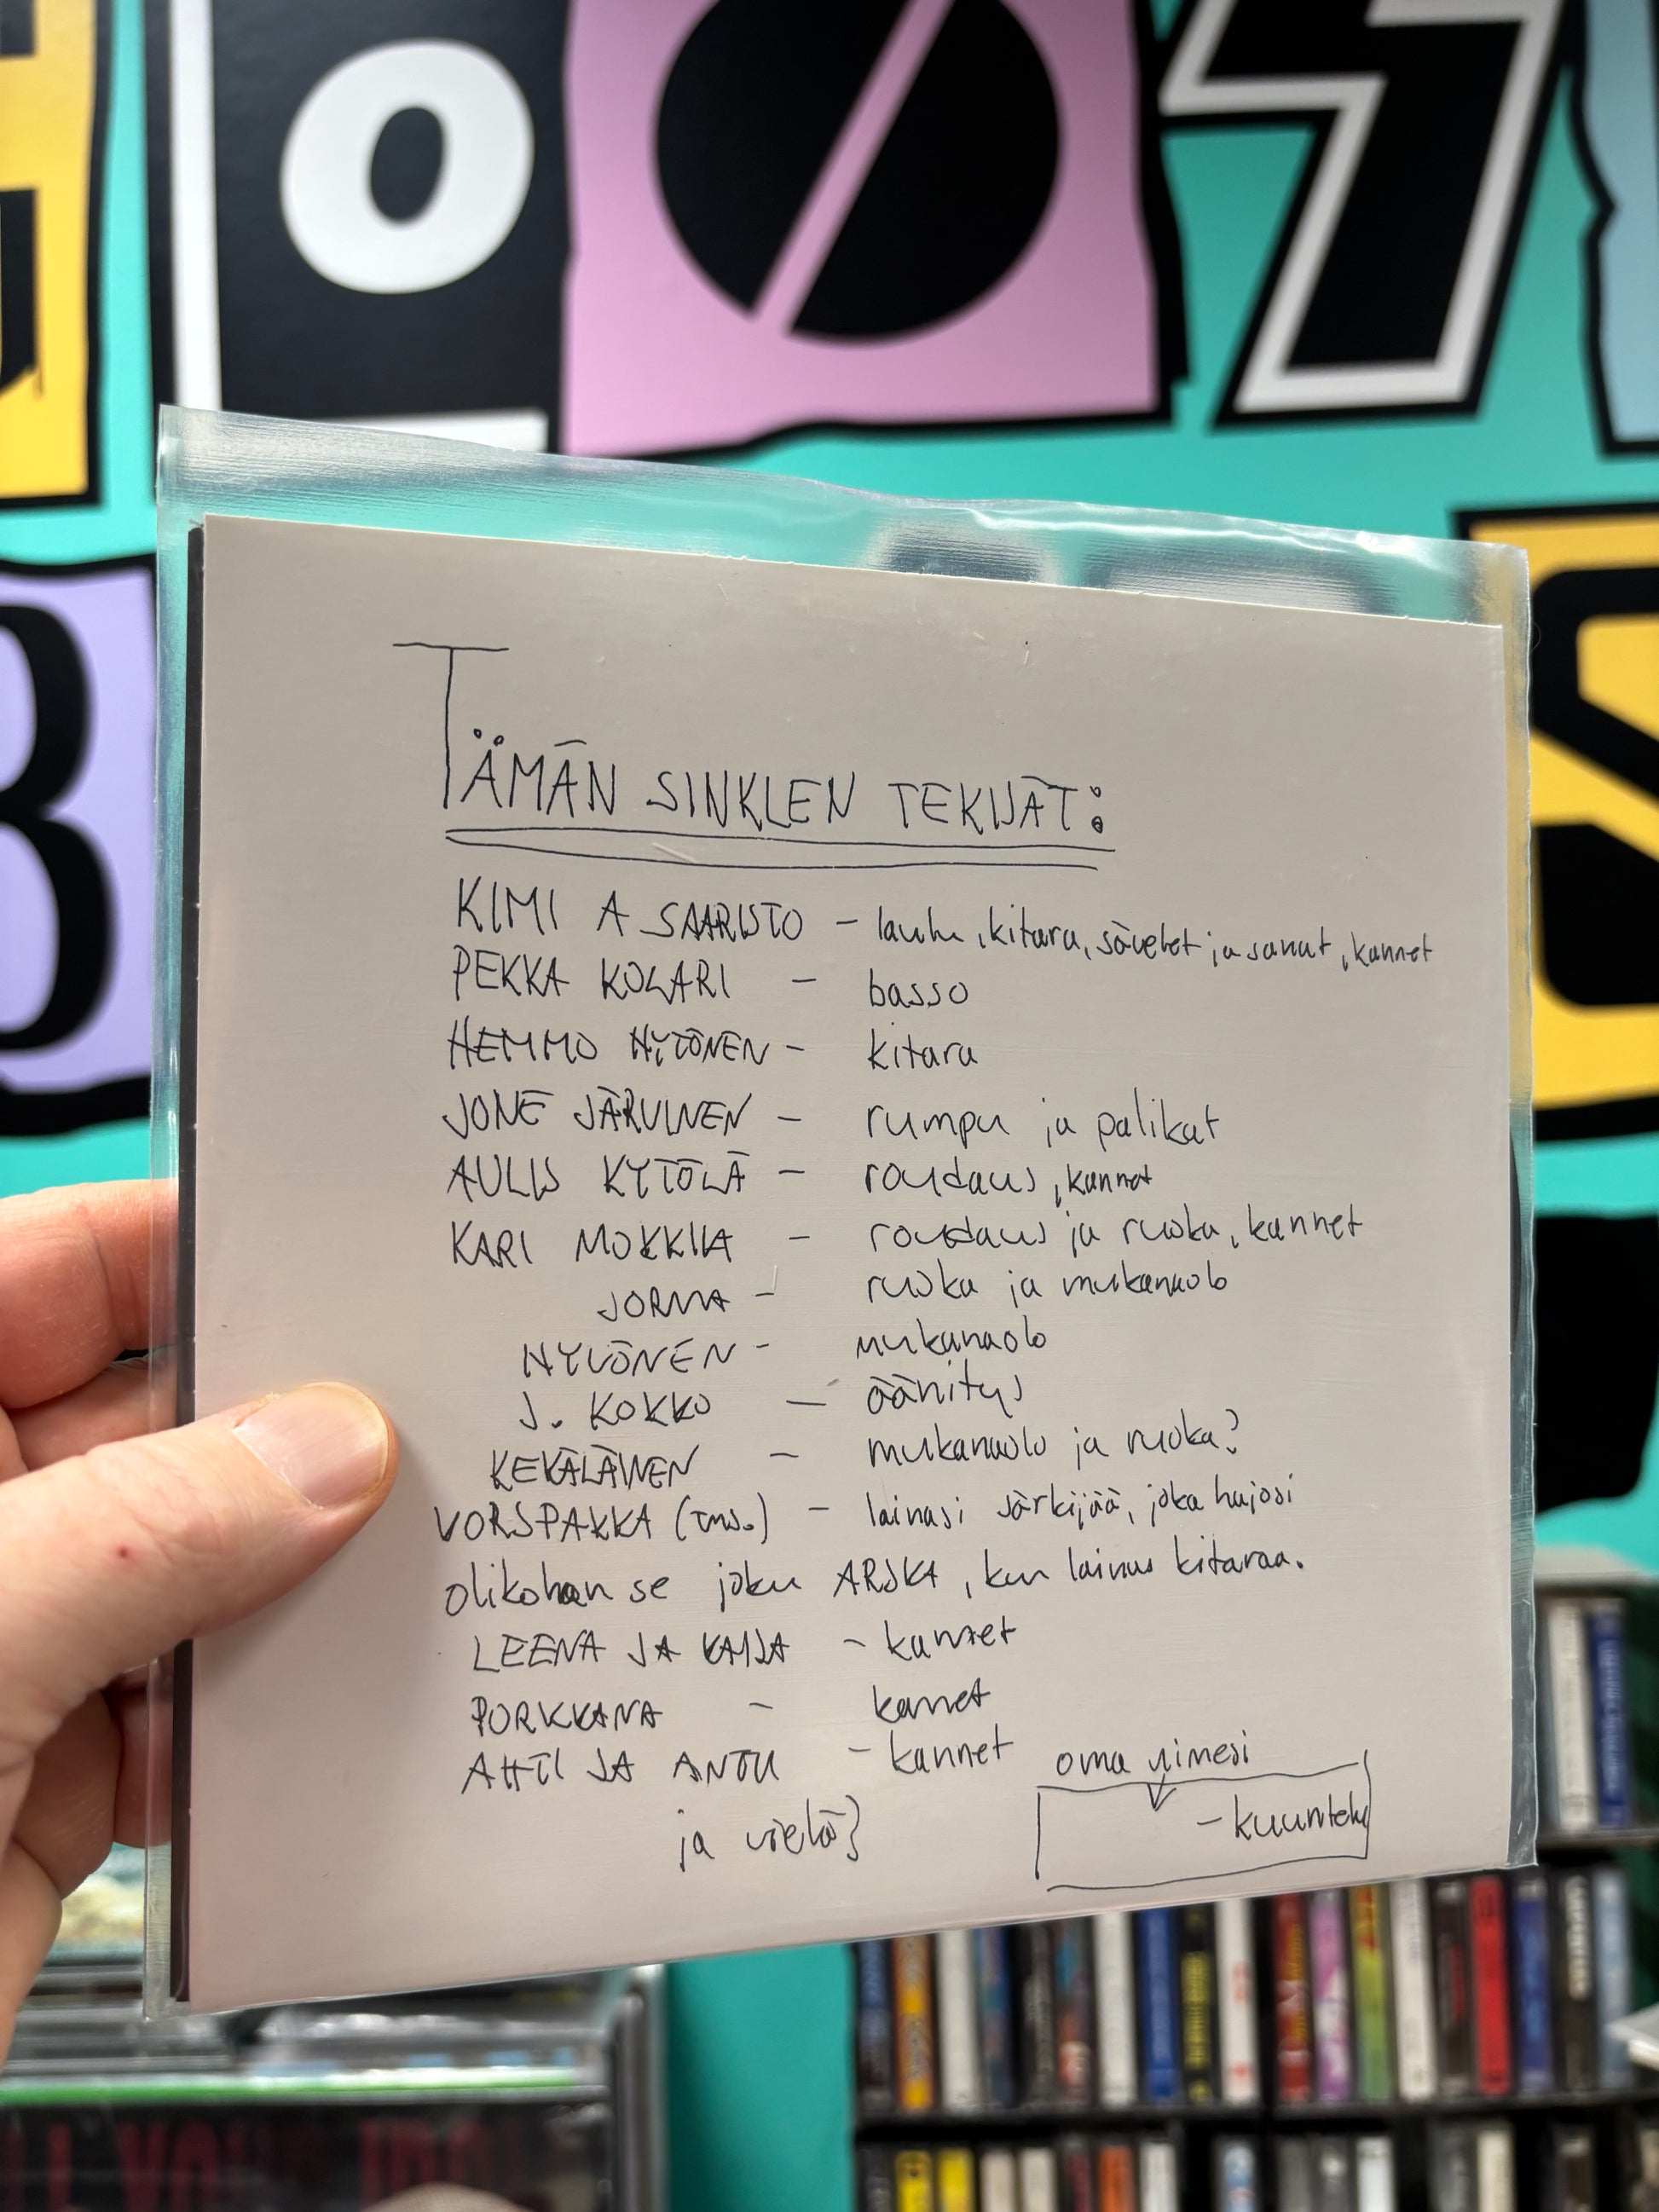 TÄMÄN SINKLEN TEKIJÄT:
KIMI A SAARISTO – laulu, kitara, sävelet ja sanat, kannet
PEKKA KOLARI – basso
HEMMO HYTÖNEN – kitara
JONE JÄRVINEN – rumpu ja palikat
AULIS KYTÖLÄ – roudaus, kannet
KARI MOKKILA – roudaus ja ruoka, kannet
JORMA – ruoka ja mukanaolo
HYVÖNEN – mukanaolo
J. KOKKO – äänitys
KEKÄLÄINEN – mukanaolo ja ruoka?
VORSPAKKA (TMS.) – lainasi särkijää, joka hajosi
olikohan se joku ARSKA, kun lainas kitaraa.
LEENA JA KAIJA – kannet
PORKKANA – kannet
AHTI JA ANTTI – kannet
oma nimesi
ja vielä?
– kuuntelu